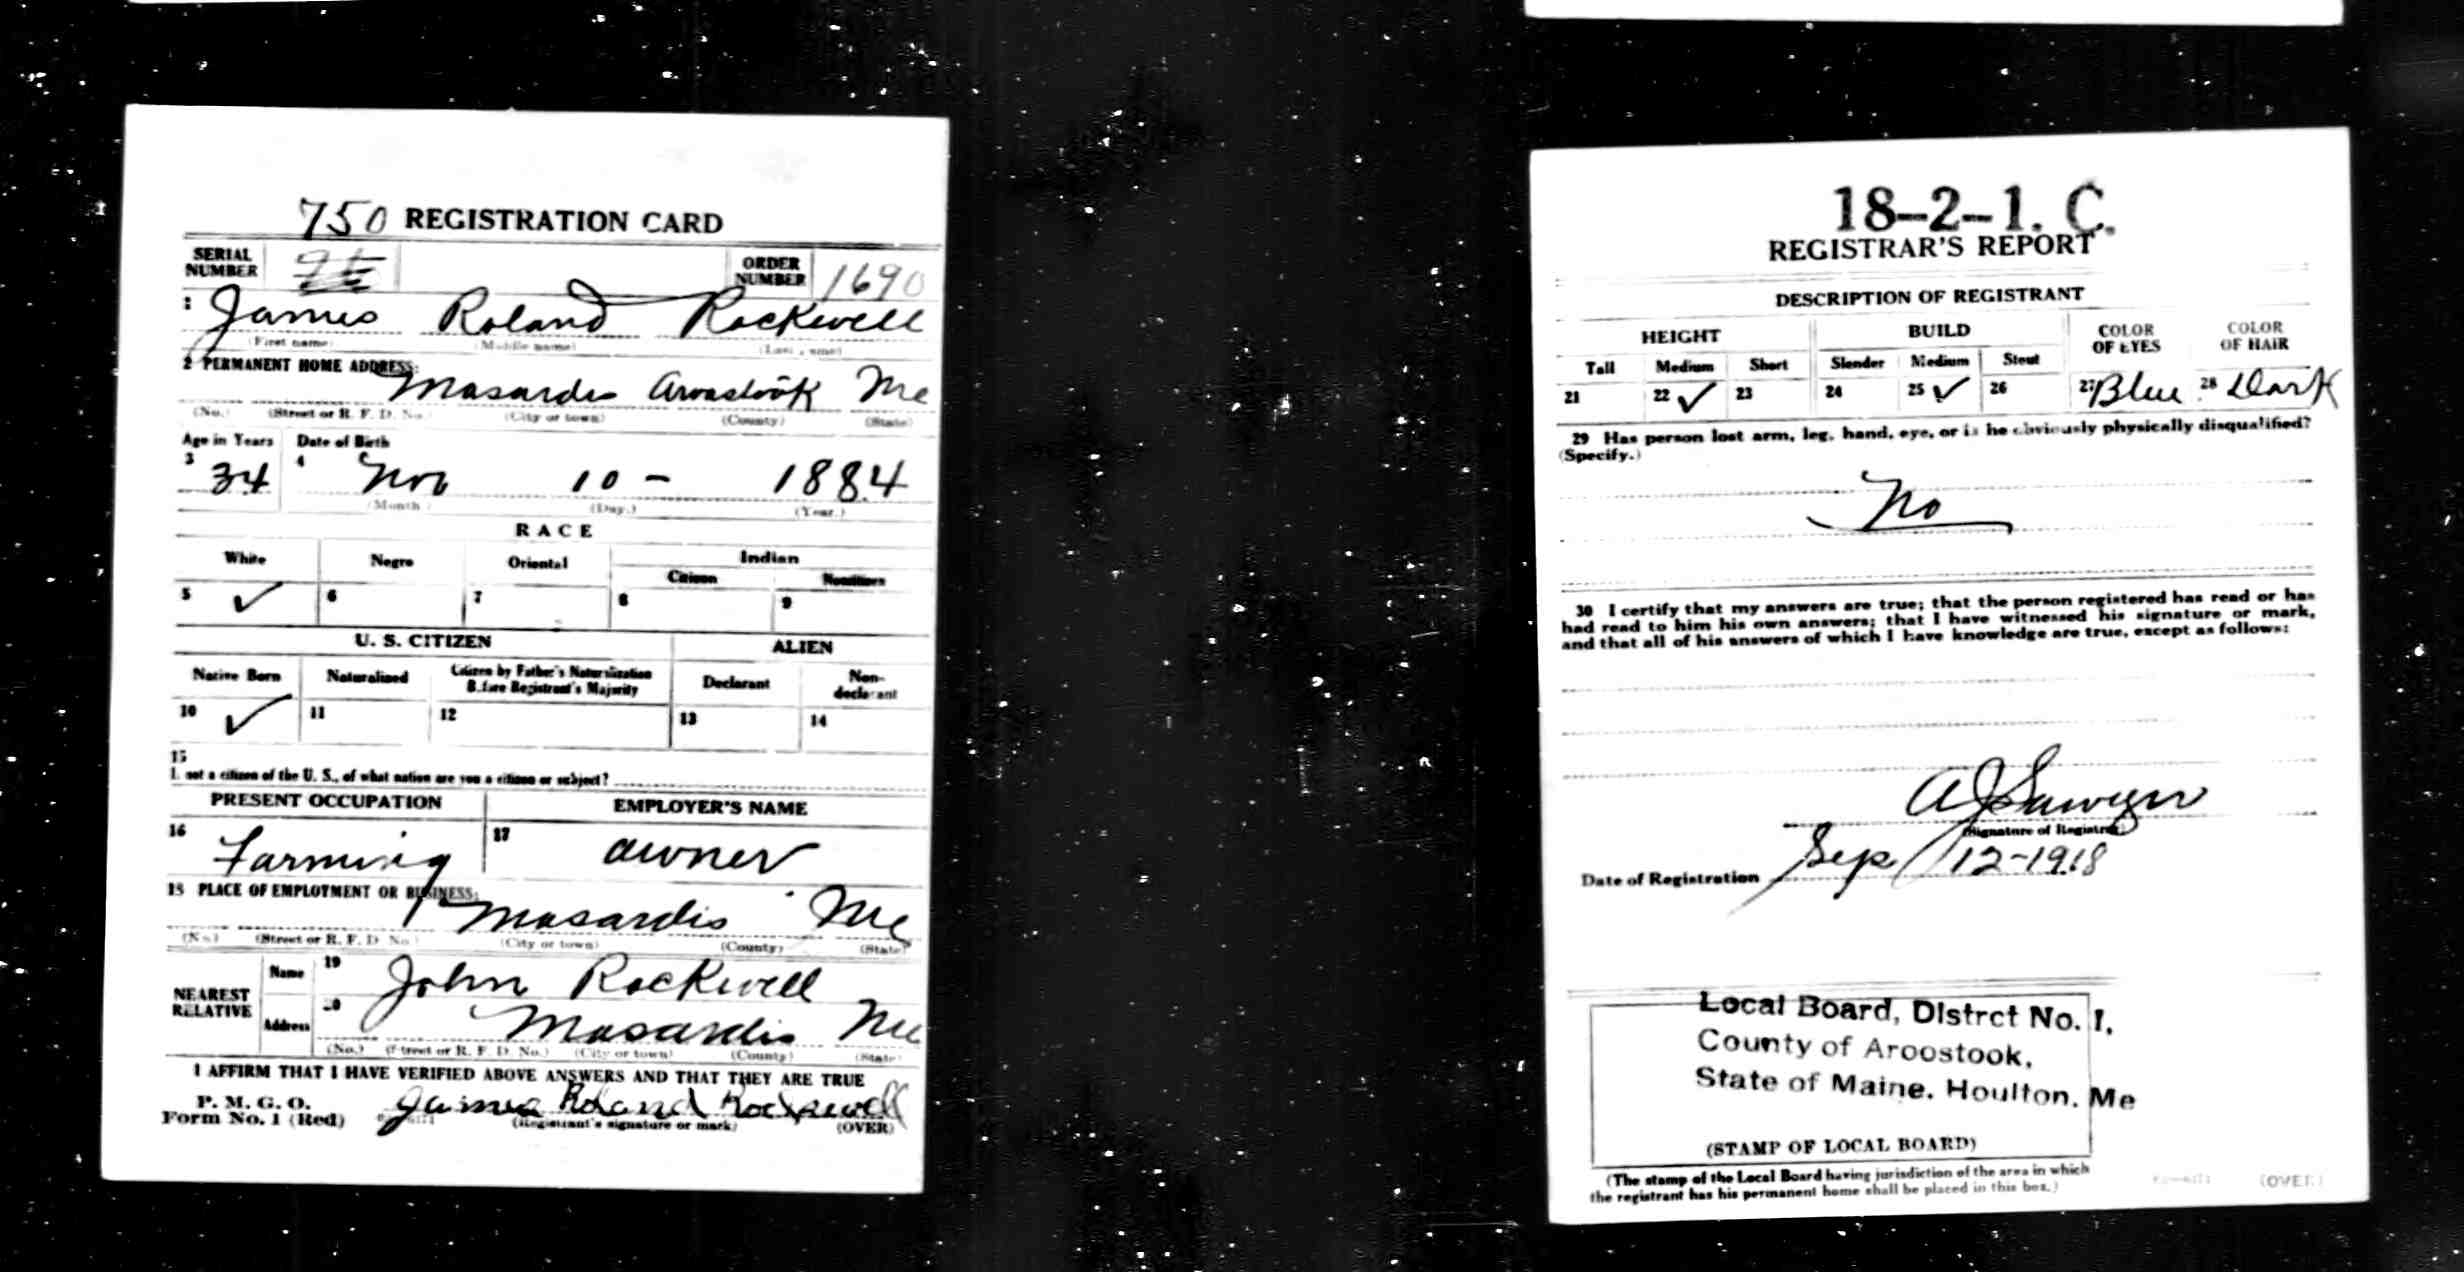 750 REGISTRATION CARD
SERIAL NUMBER ORDER NUMBER 1690
1 James Roland Rockwell
(First name) (Middle name) (Last name)
2 PERMANENT HOME ADDRESS:
Masardis Aroostook Me
(No.) (Street or R. F. D. No.) (City or town) (County) (State)
Age in Years Date of Birth
3 34 4 Nov 10 - 1884
(Month) (Day.) (Year.)
RACE
White Negro Oriental Indian
Citizen Noncitizen
5 ✓ 6 7 8 9
U. S. CITIZEN ALIEN
Native Born Naturalized Citizen by Father's Naturalization Before Registrant's Majority Declarant Non-declarant
10 ✓ 11 12 13 14
15
If not a citizen of the U. S., of what nation are you a citizen or subject?
PRESENT OCCUPATION EMPLOYER'S NAME
16 Farming 17 owner
18 PLACE OF EMPLOYMENT OR BUSINESS:
Masardis Me
(No.) (Street or R. F. D. No.) (City or town) (County) (State)
NEAREST RELATIVE Name 19 John Rockwell
Address 20 Masardis Me
(No.) (Street or R. F. D. No.) (City or town) (County) (State)
I AFFIRM THAT I HAVE VERIFIED ABOVE ANSWERS AND THAT THEY ARE TRUE
P. M. G. O.
Form No. 1 (Red) James Roland Rockwell
(Registrant's signature or mark) (OVER)
18-2-1. C.
REGISTRAR'S REPORT
DESCRIPTION OF REGISTRANT
HEIGHT BUILD COLOR OF EYES COLOR OF HAIR
Tall Medium Short Slender Medium Stout
21 22 ✓ 23 24 25 ✓ 26 27 Blue 28 Dark
29 Has person lost arm, leg, hand, eye, or is he obviously physically disqualified?
(Specify.)
No
30 I certify that my answers are true; that the person registered has read or has
had read to him his own answers; that I have witnessed his signature or mark,
and that all of his answers of which I have knowledge are true, except as follows:
A J Sawyer
(Signature of Registrar)
Date of Registration Sep 12-1918
Local Board, Distrct No. 1,
County of Aroostook,
State of Maine. Houlton. Me
(STAMP OF LOCAL BOARD)
(The stamp of the Local Board having jurisdiction of the area in which
the registrant has his permanent home shall be placed in this box.)
(OVER)